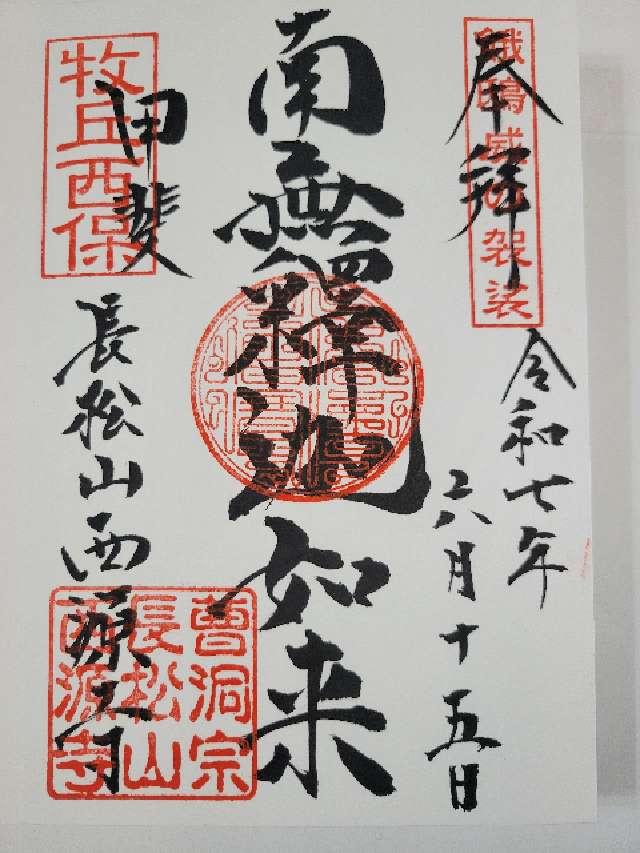 奉拝
令和七年
六月十五日
南無釋迦如来
甲斐
長松山西源寺
牧丘西保
曹洞宗
長松山
西源寺